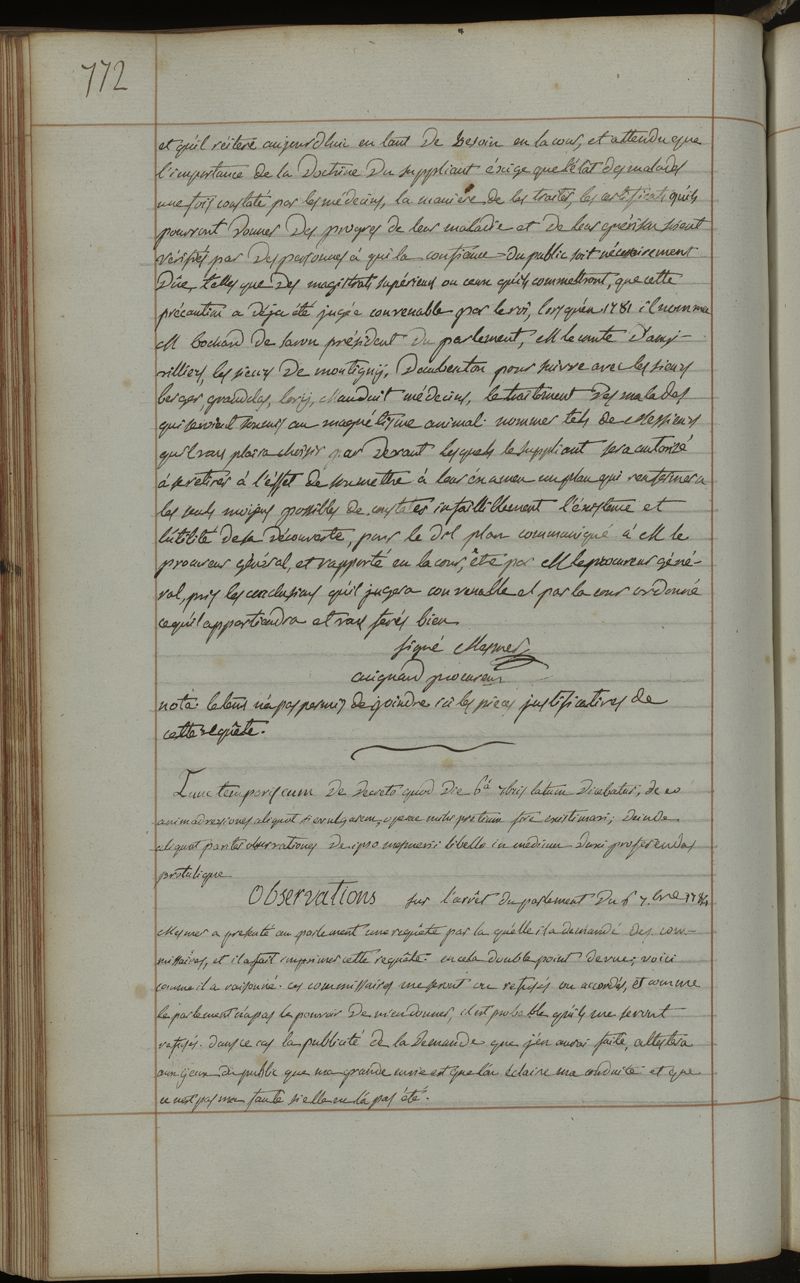 772
et qu'il réitere aujourdhui en tant de besoin en la cour, et attendu que
l'importance de la Doctrine du suppliant éxige que l'état des malades
une fois constaté par les médecins, la maniere de les traiter, les certificats qu'ils
pourront donner des progres de leur maladie et de leur guérison soient
vérifiés par des personnes à qui la confiance du public soit nécessairement
Düe, telles que des magistrats supérieurs ou ceux qu'ils commettront, que cette
précaution a déja été jugée convenable par le roi, lorsqu'en 1781 il nomma
M bochard de saron président du parlement, M le comte d'angi-
villiers, les sieurs de montigny, Daubenton pour suivre avec les sieurs
berger grandelas, lory, Mauduit médecins, le traitement des malades
qui seroient soumis au magnétisme animal. nommer tels de Messieurs
qu'il vous plaira choisir par devant lesquels le suppliant sera autorisé
à se retirer à l'éffet de soumettre à leur éxamen un plan qui renfermera
les seuls moyens possibles de constater infailliblement l'éxistence et
l'utilité de sa découverte, pour le dit plan communiqué à M le
procureur général, et rapporté en la cour, être par M le procureur géné-
ral, pris les conclusions qu'il jugera convenable et par la cour ordonné
ce qu'il appartiendra et vous ferés bien
signé Mesmer
procureur
nota. le tems n'a pas permis de joindre ici les pieces justificatives de
cette requête.
Tunc temporis cum de decreto quod die 6a 7bris latum dicebatur, de eo
animadversiones aliquot si evulgarem, operae mihi pretium fore existimavi; deinde
aliquot pariter observationes de ipso mesmeri libello in medium duxi proferendas
protulique
Observations sur l'arrêt du parlement du 6 7.bre 1784
Mesmer a présenté au parlement une requête par la quelle il a demandé des com-
missaires, et il a fait imprimer cette requête. en cela double point de vue; voici
comme il a raisonné. ces commissaires me seront ou refusés ou accordés, et comme
le parlement n'a pas le pouvoir de m'en donner, il est probable qu'ils me seront
refusés. dans ce cas la publicité de la demande que j'en aurai faite, attestera
aux yeux du public que ma grande envie est que l'on éclaire ma conduite et que
ce n'est pas ma faute si elle ne l'a pas été.